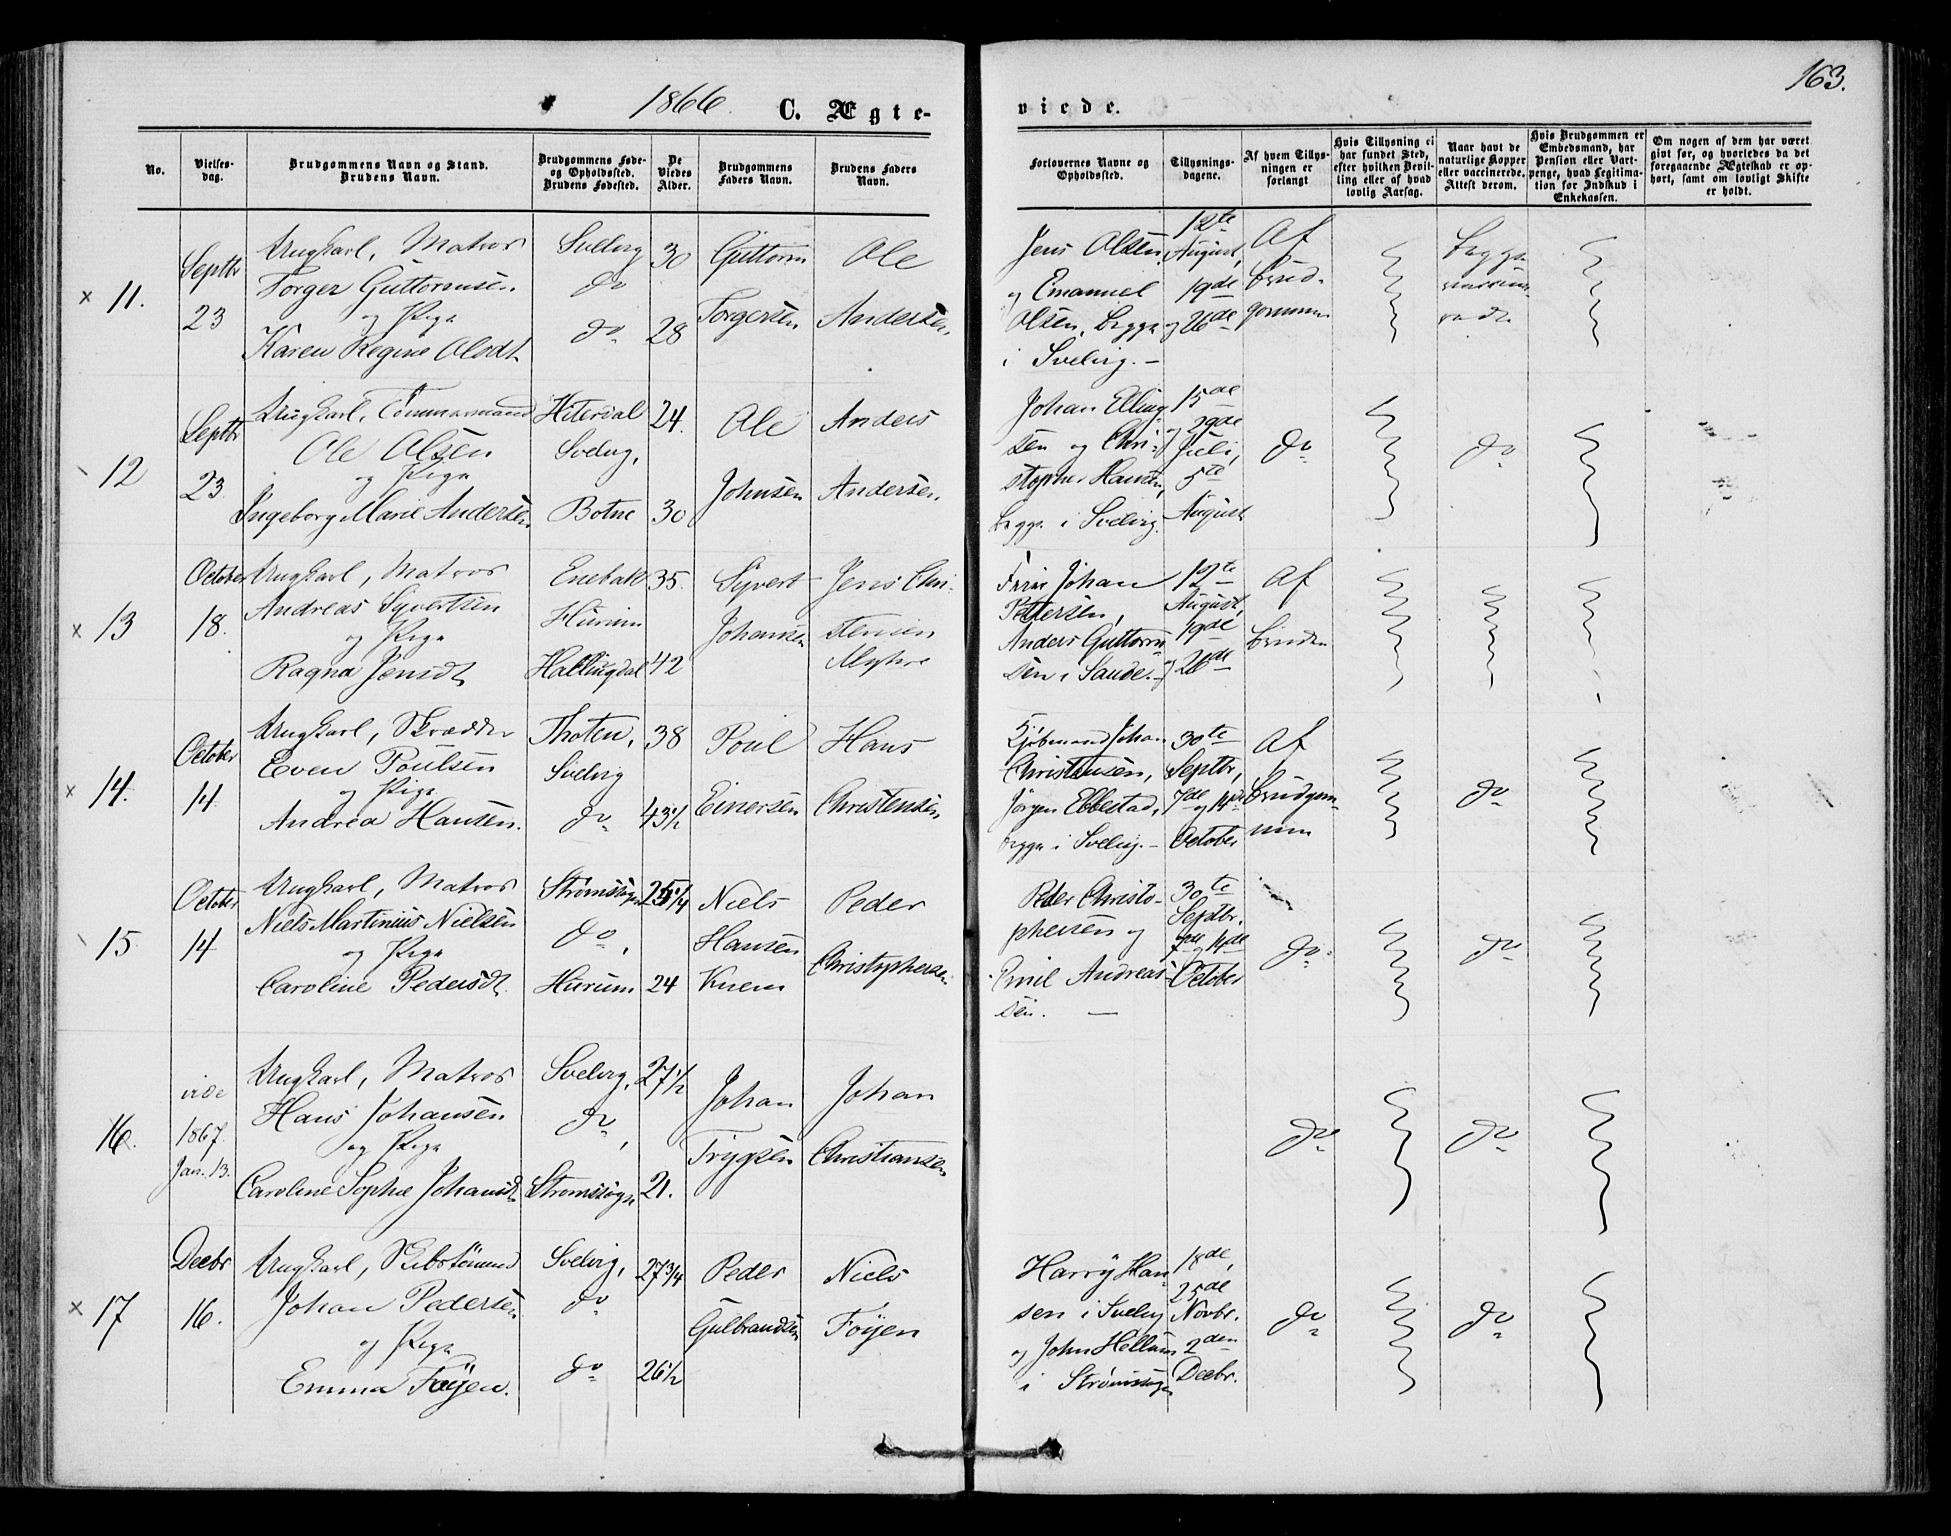 1866.
C. Ægte-
viede.
163.
No.
Vielses-
dag.
Brudgommens Navn og Stand.
Brudens Navn.
Brudgommens Føde-
og Opholdssted.
Brudens Fødested.
De
Viedes
Alder.
Brudgommens
Faders Navn.
Brudens Faders
Navn.
Forlovernes Navne og
Opholdssted.
Tillysnings-
dagene.
Af hvem Tillys-
ningen er
forlangt
Hvis Tillysning ei
har fundet Sted,
efter hvilken Bevil-
ling eller af hvad
lovlig Aarsag.
Naar havt de
naturlige Kopper
eller vaccinerede.
Attest derom.
Hvis Brudgommen er
Embedsmand, har
Pension eller Vart-
penge, hvad Legitima-
tion for Indskud i
Enkekassen.
Om nogen af dem har været
gift før, og hvorledes da det
foregaaende Ægteskab er op-
hørt, samt om lovligt Skifte
er holdt.
11.
Septbr
23
Ungkarl, Matros
Torger Guttormsen
og Pige
Karen Regine Olsdt
Svelvig
do
do
30
28
Guttorm
Torgersen
Ole
Andersen
Jens Olsen
og Emanuel
Olsen, begge
i Svelvig. –
12te
August,
19de
og 26de
Af
brud-
gommen
begge
vaccine-
rede
12
Septbr
23
Ungkarl, Tømmermand
Ole Olsen
og Pige
Ingeborg Marie Andersen
Hiterdal
Svelvig,
Botne
24.
30
Ole
Johnsen
Anders
Andersen
Johan Elling-
sen og Chri-
stopher Hansen,
begge i Svelvig.
15de
og 29de
Juli,
5te
August
do
do
13
October
18.
Ungkarl, Matros
Andreas Syvertsen
og Pige
Ragna Jensdt
Enebak
Hurum
Hallingdal
35.
42
Syvert
Johansen
Jens Chri-
stensen
Myhre
Johan
Pettersen,
Anders Guttorm-
sen i Sande.
12te
August,
19de
og 26de
Af
bruden
14.
October
14
Ungkarl, Skrædder
Even Poulsen
og Pige
Andrea Hansen.
Thoten,
Svelvig
do
38
43½
Poul
Einersen
Hans
Christensen
Kjøbmand Johan
Christensen,
Jørgen Ebbestad,
begge i Svelvig. –
30te
Septbr,
7de og 14de
October
Af
brudgom-
men
do
15
October
14
Ungkarl, Matros
Niels Martinius Nielsen
og Pige
Caroline Pedersdt.
Strømssogn
do,
Hurum
25¼
24
Niels
Hansen
Knem
Peder
Christophersen
Peder Christo-
phersen og
Emil Andreas-
sen. –
30te
Septbr.
7de og 14de
October
do
do
16.
vide
1867.
Jan. 13.
Ungkarl, Matros
Hans Johansen
og Pige
Caroline Sophie Johansdt
Svelvig,
do,
Strømssogn
27½
21.
Johan
Trygsen
Johan
Christiansen
do
do
17
Decbr
16.
Ungkarl, Skibstømmermand
Johan Pedersen
og Pige
Emma Føyen.
Svelvig,
do
do
27¾
26½
Peder
Gulbrandsen
Niels
Føyen
Harry Han-
sen i Svelvig
og John Hellum
i Strømssogn
18de,
25de
Novbr.
2den
Decbr.
do
do